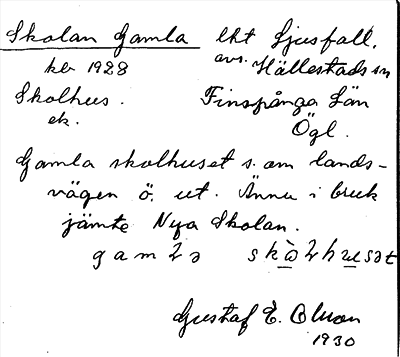 Skolan Gamla lkt Ljusfall,
avs. Hällestads sn
kb 1928
Skolhus. Finspånga Län
ek. Ögl.
Gamla skolhuset s. om lands-
vägen ö. ut. Ännu i bruk
jämte Nya Skolan.
Gustaf E. Olsson
1930